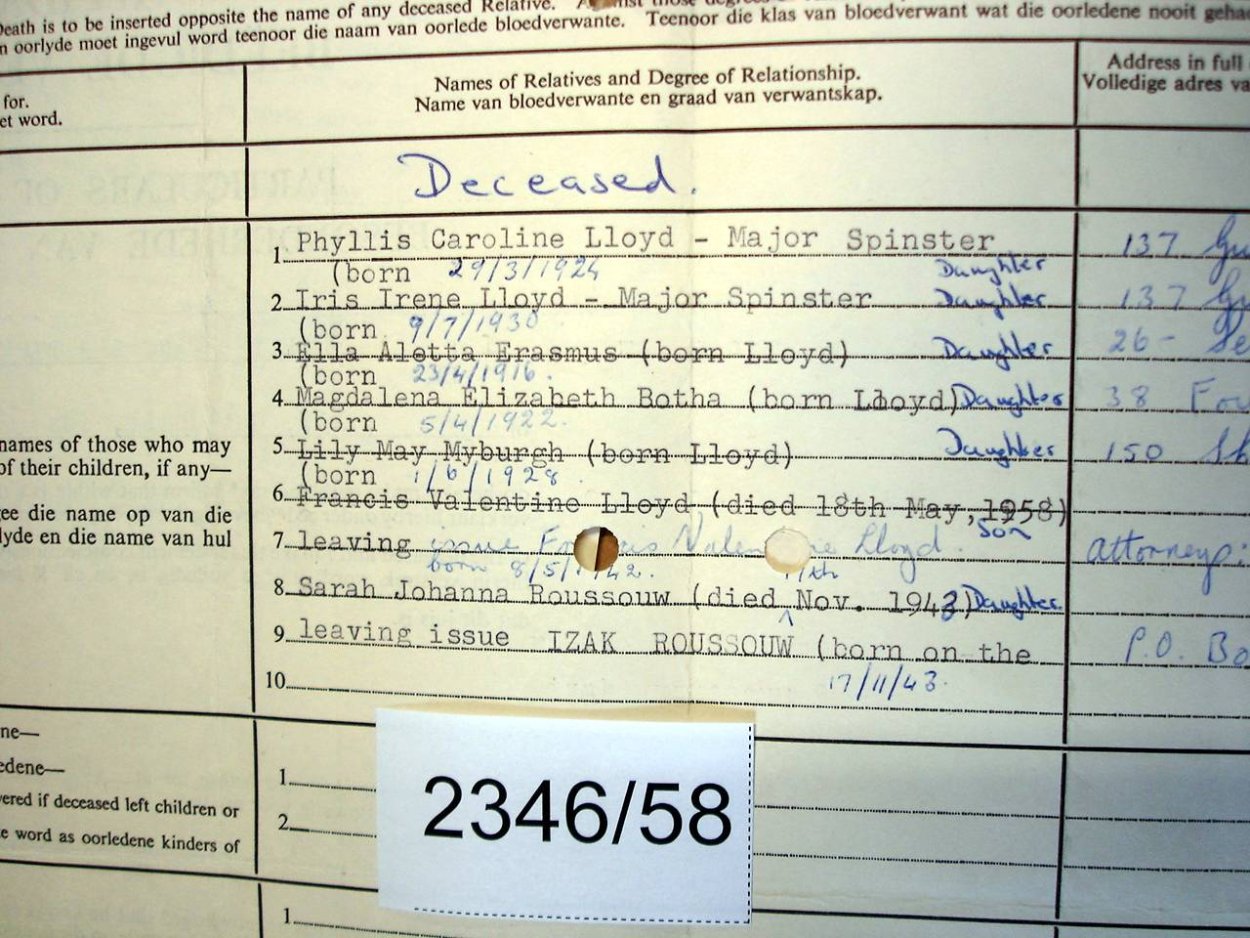 Death is to be inserted opposite the name of any deceased Relative.
n oorlyde moet ingevul word teenoor die naam van oorlede bloedverwante. Teenoor die klas van bloedverwant wat die oorledene nooit
for.
et word.
Names of Relatives and Degree of Relationship.
Name van bloedverwante en graad van verwantskap.
Address in full
Volledige adres va
Deceased.
1. Phyllis Caroline Lloyd - Major Spinster 137
(born 29/3/1924 Daughter
2. Iris Irene Lloyd - Major Spinster Daughter 137
(born 9/7/1930
3. Ella Aletta Erasmus (born Lloyd) Daughter 26-
(born 23/4/1916.
4. Magdalena Elizabeth Botha (born Lloyd) Daughter 38
(born 5/4/1922.
5. Lily May Myburgh (born Lloyd) Daughter 150
(born 1/6/1928.
6. Francis Valentine Lloyd (died 18th May, 1958)
7. leaving issue Lloyd. Son attorneys:
born 8/5/1942. 11th
8. Sarah Johanna Roussouw (died Nov. 1943) Daughter
9. leaving issue IZAK ROUSSOUW (born on the P.O. Bo
17/11/43.
10.
names of those who may
of their children, if any—
ee die name op van die
lyde en die name van hul
ne—
edene—
vered if deceased left children or
e word as oorledene kinders of
1.
2.
2346/58
1.